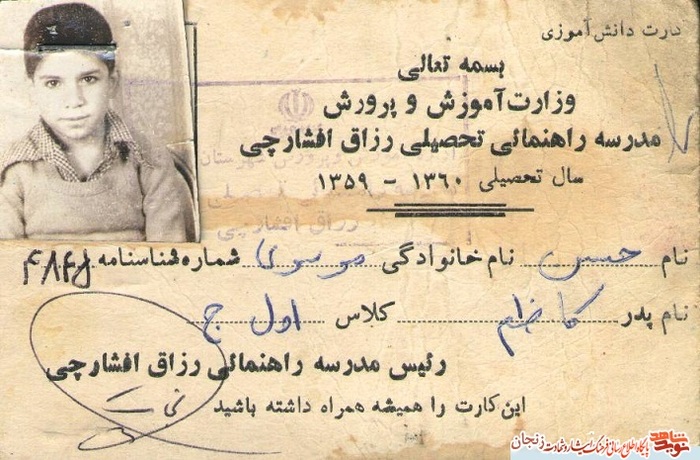 کارت دانش آموزی
بسمه تعالی
وزارت آموزش و پرورش
مدرسه راهنمائی تحصیلی رزاق افشارچی
سال تحصیلی ۱۳۶۰ - ۱۳۵۹
نام حسن نام خانوادگی موسوی شماره شناسنامه ۴۸۴۵
نام پدر کاظم کلاس اول ج
رئیس مدرسه راهنمائی رزاق افشارچی
این کارت را همیشه همراه داشته باشید
نوید شاهد پایگاه اطلاع رسانی فرهنگ ایثار و شهادت زنجان